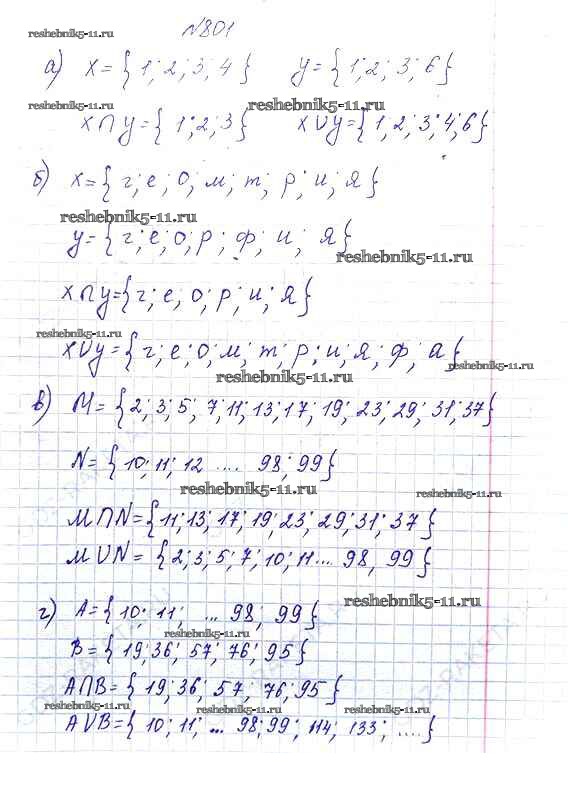 №801
reshebnik5-11.ru
а) X = { 1; 2; 3; 4 } У = { 1; 2; 3; 6 }
reshebnik5-11.ru reshebnik5-11.ru
X∩У = { 1; 2; 3 } X∪У = { 1, 2; 3; 4; 6 }
б) X = { г; е; о; м; т; р; и; я }
reshebnik5-11.ru
У = { г; е; о; р; ф; и; я }
reshebnik5-11.ru
X∩У = { г; е, о; р; и; я }
reshebnik5-11.ru
X∪У = { г; е; о; м; т; р; и; я; ф, а }
reshebnik5-11.ru
reshebnik5-11.ru
в) M = { 2; 3; 5; 7; 11; 13; 17; 19; 23; 29; 31; 37 }
N = { 10; 11; 12 .... 98; 99 }
reshebnik5-11.ru reshebnik5-11.ru
M∩N = { 11; 13; 17; 19; 23; 29; 31; 37 }
M∪N = { 2; 3; 5; 7; 10; 11 ... 98, 99 }
г) A = { 10; 11; ... 98; 99 }
reshebnik5-11.ru
reshebnik5-11.ru
B = { 19; 36; 57; 76; 95 }
A∩B = { 19; 36; 57, 76; 95 }
reshebnik5-11.ru reshebnik5-11.ru reshebnik5-11.ru
A∪B = { 10; 11; ... 98; 99; 114; 133; .... }